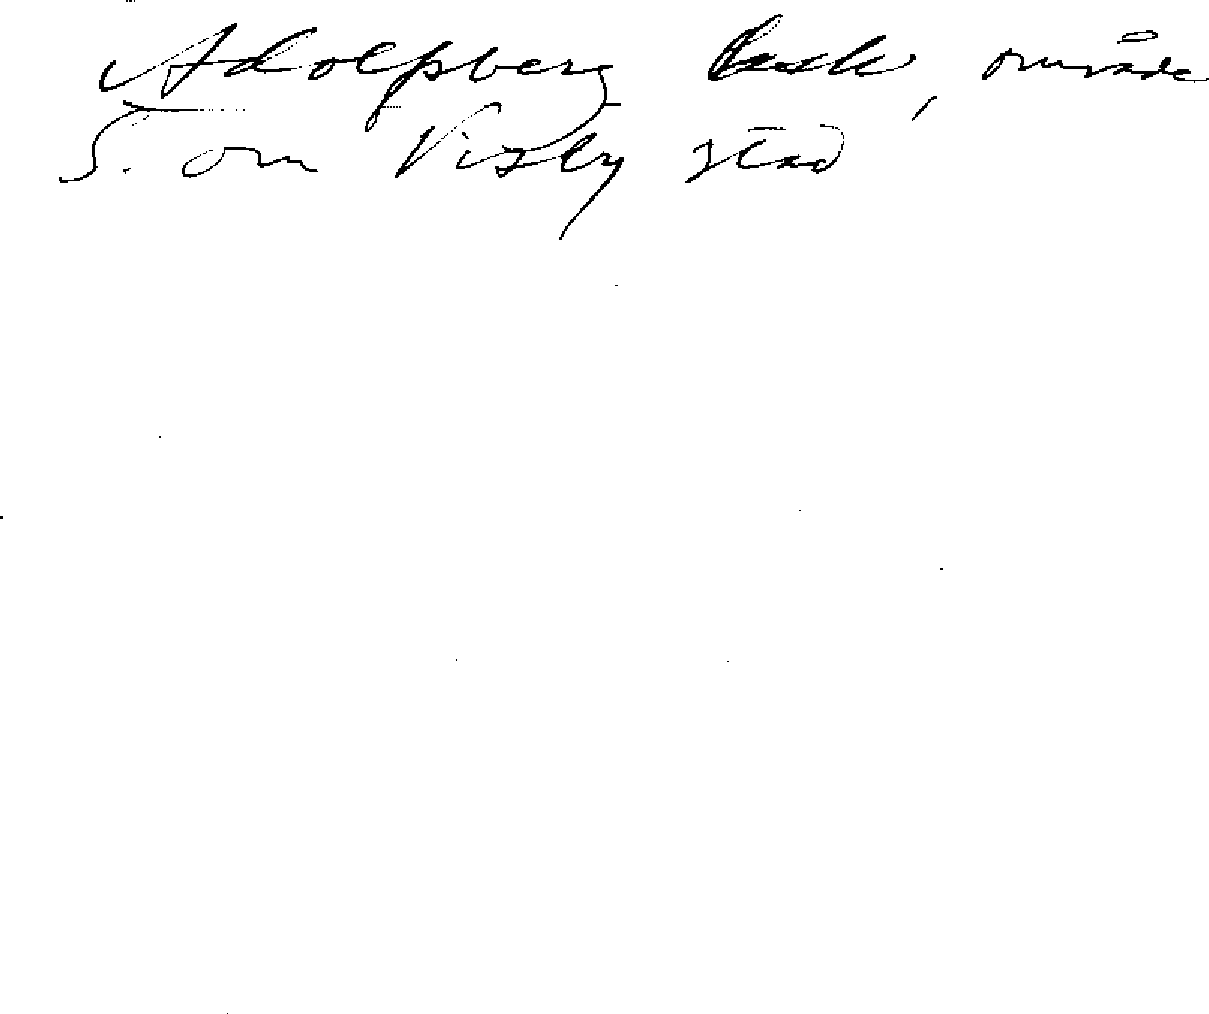 Adolfsberg Backe, område
S. om Visby stad